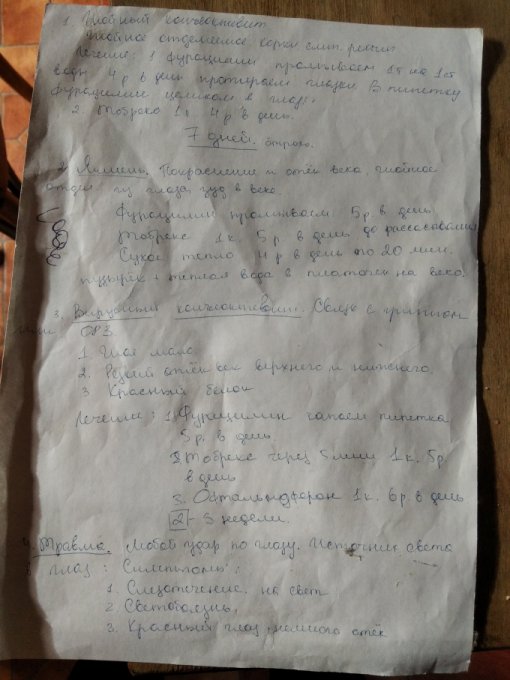 1. Гнойный конъюктивит
Гнойное отделяемое корки слип. ресниц
Лечение: 1 Фурацилин промываем 1т на 1ст
воды 4 р в день протираем глазки В пипетку
фурацилин целиком в глаз
2. Тобрекс 1к 4 р в день.
7 дней. строго.
2. Ячмень. Покраснение и отёк века, гнойное
отдел из глаза, зуд в веке.
Фурацилин промываем 5р. в день
Тобрекс 1к. 5р в день до рассасывания
Сухое тепло 4 р в день по 20 мин.
пузырёк + теплая вода в платочек на веко.
3. Вирусный конъюктивит. Связь с гриппом
или ОРЗ.
1. Гноя мало
2. Резкий отёк век верхнего и нижнего.
3 Красный белок
Лечение: 1. Фурацилин капаем пипетка
5р. в день.
2. Тобрекс через 5 мин 1к. 5р.
в день
3. Офтальмоферон 1к. 6р. в день
2 - 3 недели.
4. Травма. Любой удар по глазу. Источник света
в глаз: Симптомы:
1. Слезотечение на свет
2 Светобоязнь,
3. Красный глаз, немного отёк